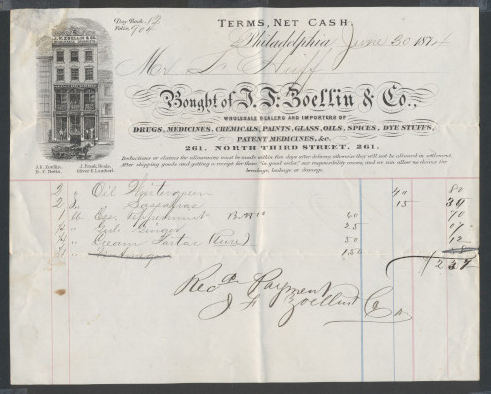 Day Book, 12
Folio, 904
TERMS, NET CASH.
Philadelphia, June 30 1874
J. F. ZOELLIN & CO.
Bought of J. F. Zoellin & Co.,
WHOLESALE DEALERS AND IMPORTERS OF
DRUGS, MEDICINES, CHEMICALS, PAINTS, GLASS, OILS, SPICES, DYE STUFFS,
PATENT MEDICINES, &c.
261. NORTH THIRD STREET. 261.
Deductions or claims for allowances must be made within five days after delivery otherwise they will not be allowed in settlement.
After shipping goods and getting a receipt for them "in good order," our responsibility ceases, and we can allow no claims for
breakage, leakage or damage.
2 " Oil Wintergreen 40 80
2 " Sassafras 15 30
Ess. Peppermint 60 70
" Ginger 25 07
" Cream Tartar (Pure) 50 12
150
237
Recd Payment
J F Zoellin & Co